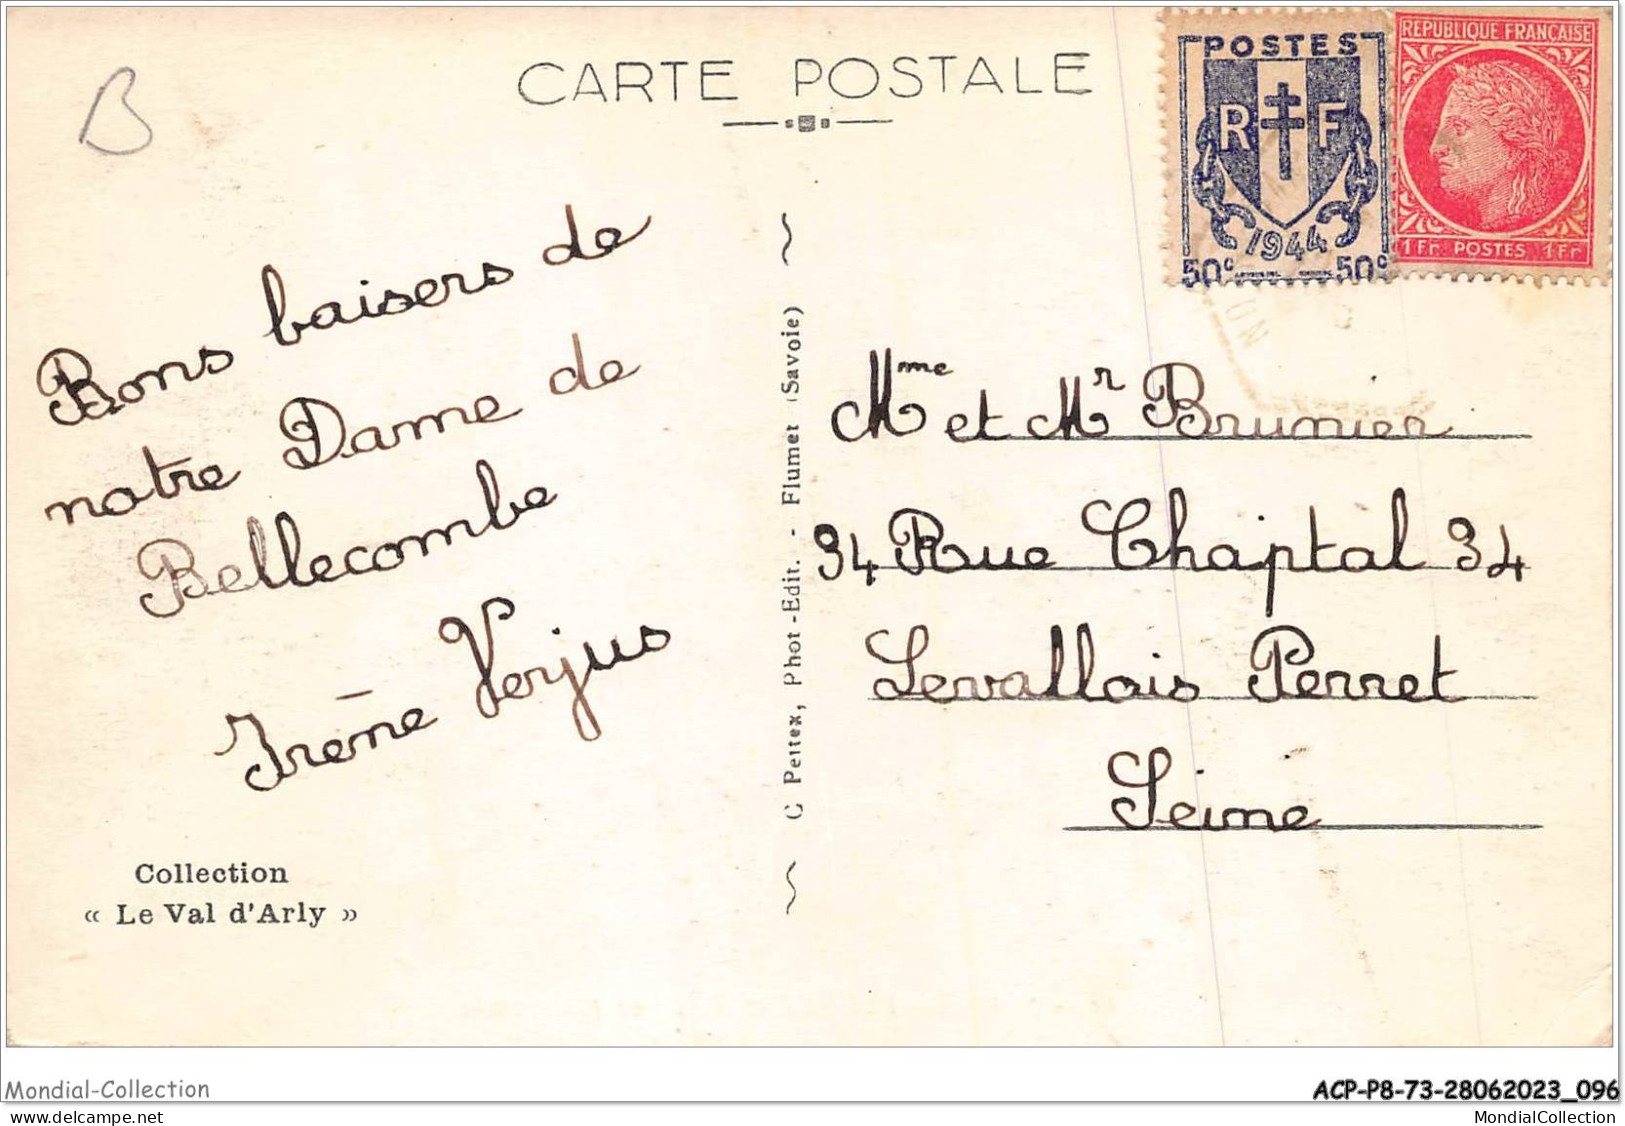 CARTE POSTALE
B
POSTES
R F
1944
50c 50c
REPUBLIQUE FRANÇAISE
1Fr. POSTES 1Fr
Bons baisers de
notre Dame de
Bellecombe
Irène Verjus
Collection
« Le Val d'Arly »
C Pettex, Phot-Edit. - Flumet (Savoie)
Mme et Mr Brunier
34 Rue Chaptal 34
Levallois Perret
Seine
Mondial-Collection
ACP-P8-73-28062023_096
www.delcampe.net
MondialCollection